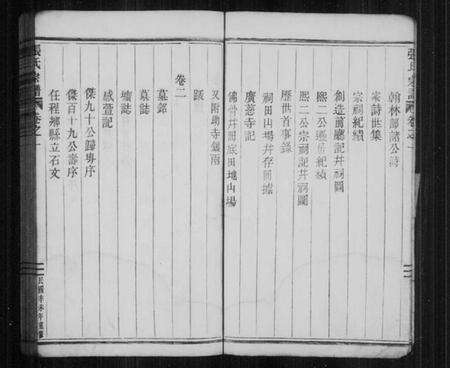 張氏宗譜 卷之一
翰林部諸公詩
宋詩世集
宗祠紀績
創造前廳記并祠圖
熙二公遷居紀績
熙二公宗祠記并祠圖
歷世首事錄
祠田山場并存圖據
廣慈寺記
佛骨并前底田地山場
又附助寺錢兩
跋
卷二
墓郊
墓誌
壙誌
感萱記
傑九十公歸粤序
傑百十九公壽序
任程鄉縣立石文
張氏宗譜 卷之一
民國辛未年重修